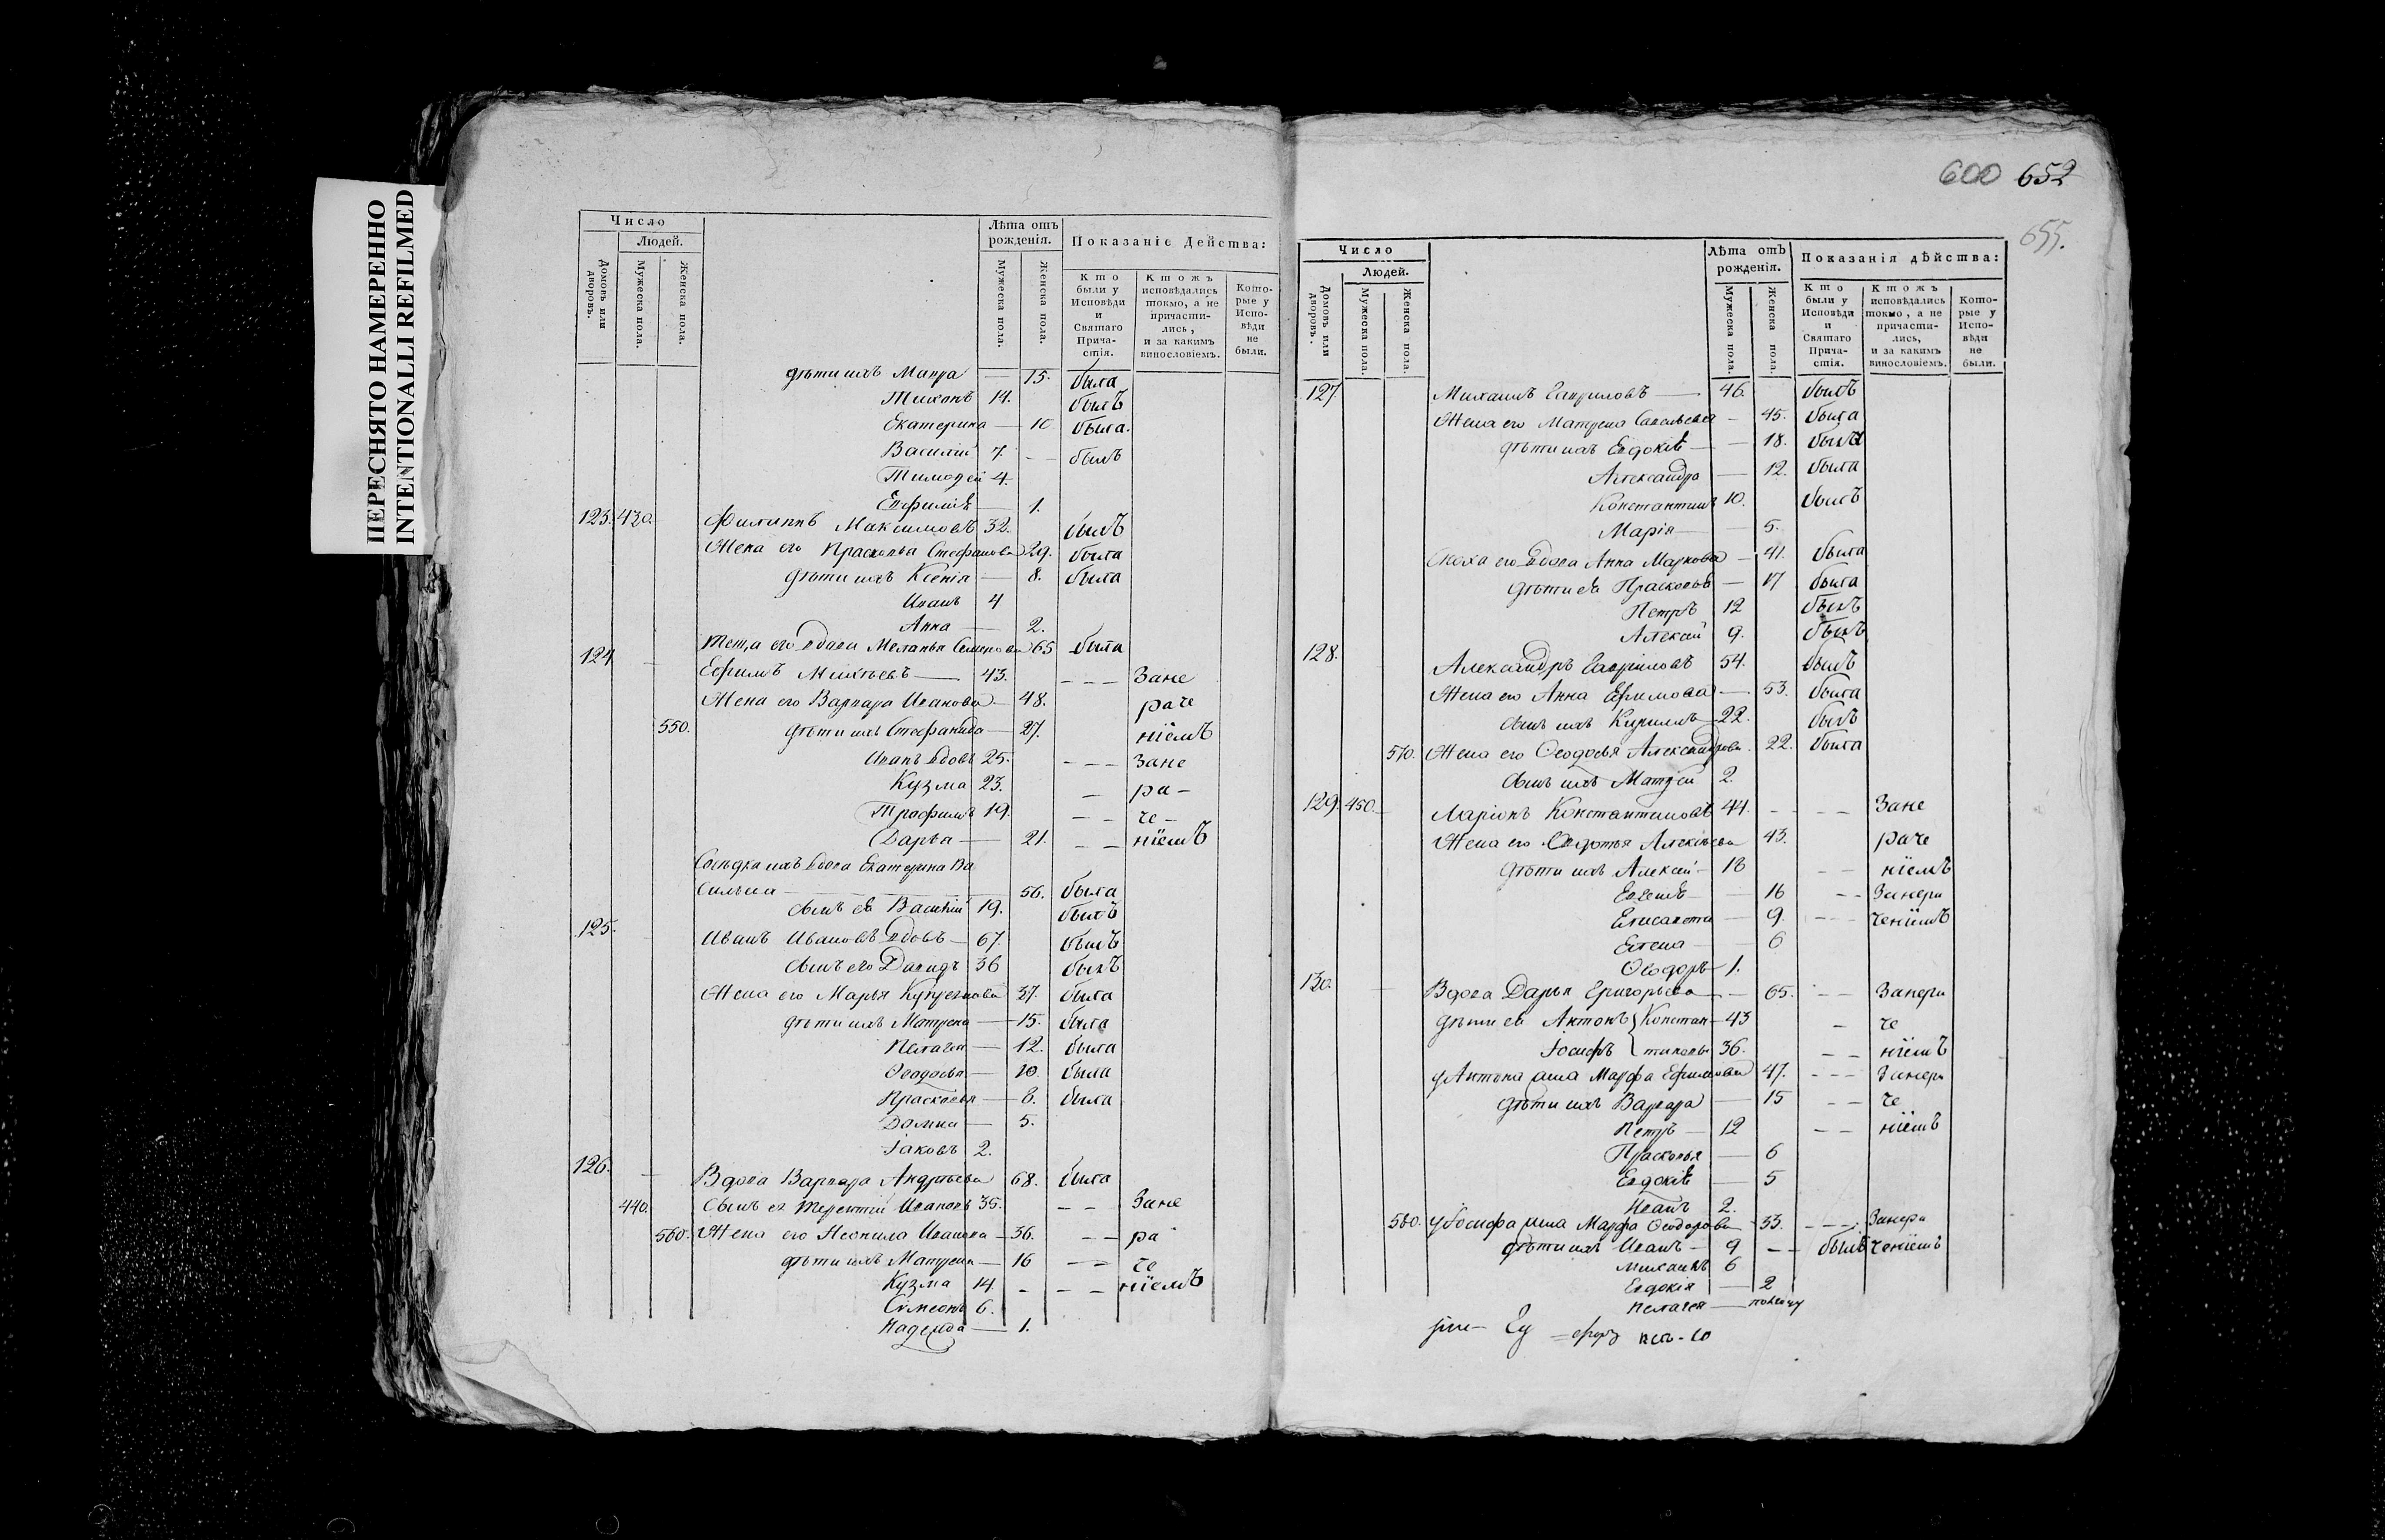 ПЕРЕСНЯТО НАМЕРЕННО
INTENTIONALLI REFILMED
Число
Людей.
Домовъ или дворовъ.
Мужеска пола.
Женска пола.
Лѣта отъ рожденія.
Мужеска пола.
Женска пола.
Показаніе Действа:
Кто были у Исповѣди и Святаго Причастія.
Ктожъ исповѣдались токмо, а не причастились, и за какимъ винословіемъ.
Которые у Исповѣди не были.
дѣти ихъ Мавра — 15. была
Тихонъ 14. былъ
Екатерина — 10. была.
Василій 7. былъ
Тимоѳей 4.
Евфимія — 1.
123. 430. Филиппъ Максимовъ 32. былъ
Жена его Прасковья Стефанова 29. была
дѣти ихъ Ксенія — 8. была
Иванъ 4
Анна — 2.
теща его вдова Меланья Семенова 65 была
124 Ефимъ Михѣевъ — 43. — — — Зане
Жена его Варвара Иванова — 48. раче
550. дѣти ихъ Стефанида — 27. ніемъ
Иванъ вдовъ 25. — — — Зане
Кузма 23. — ра —
Трофимъ 19. — — че —
Дарья — 21. — — ніемъ
Сосѣдка ихъ вдова Екатерина Ва
сильева — 56. была
сынъ ея Василій 19. былъ
125. Иванъ Ивановъ вдовъ — 67. былъ
сынъ его Давидъ 36 былъ
Жена его Марья 37. была
дѣти ихъ Матрена — 15. была
Пелагея — 12. была
Ѳеодосья — 10. была
Прасковья — 8. была
Домна — 5.
Іаковъ 2.
126. — Вдова Варвара Андрѣева 68. была
440. Сынъ ея Терентій Ивановъ 35. — — Зане
560. Жена его Неонила Иванова — 36. — — ра
дѣти ихъ Матрена — 16 — — че
Кузма 14. — — — ніемъ
Симеонъ 6.
Надежда — 1.
600 652
655.
Число
Людей.
Домовъ или дворовъ.
Мужеска пола.
Женска пола.
Лѣта отъ рожденія.
Мужеска пола.
Женска пола.
Показанія дѣйства:
Кто были у Исповѣди и Святаго Причастія.
Ктожъ исповѣдались токмо, а не причастились, и за какимъ винословіемъ.
Которые у Исповѣди не были.
127 Михаилъ Гавриловъ — 46. былъ
Жена его Матрена Савельева — 45. была
дѣти ихъ Евдокія — 18. была
Александра — 12. была
Константинъ 10. былъ
Марія — 5.
Сноха его вдова Анна Маркова — 41. была
дѣти ея Прасковья — 17 была
Петръ 12 былъ
Алексій 9. былъ
128. Александръ Гавриловъ 54. былъ
Жена его Анна Ефимова — 53. была
сынъ ихъ Кириллъ — 22. былъ
570. Жена его Ѳеодосья Александрова 22. была
сынъ ихъ Матѳей 2.
129. 450. Ларіонъ Константиновъ 44. — — — Зане
Жена его Авдотья Алексѣева 43. раче
дѣти ихъ Алексій — 18 — — ніемъ
Евгенія — 16 — — Занера
Елисавета — 9. — — — ченіемъ
Елена — 6
Ѳеодоръ — 1.
130. — Вдова Дарья Григорьева — — 65. — — Занера
дѣти ея Антонъ } Констан — 43 — че
Іосифъ { тиновы 36. — — ніемъ
у Антона жена Марфа Ефимова 47. — — — Занера
дѣти ихъ Варвара — 15 — — че
Петръ — 12 — — ніемъ
Прасковья — 6
Евдокія — 5
Иванъ 2.
580. у Іосифа жена Марфа Ѳеодорова 33. — — — Занера
дѣти ихъ Иванъ — 9 — — былъ ченіемъ
Михаилъ 6
Евдокія — 2
Пелагея — полгоду